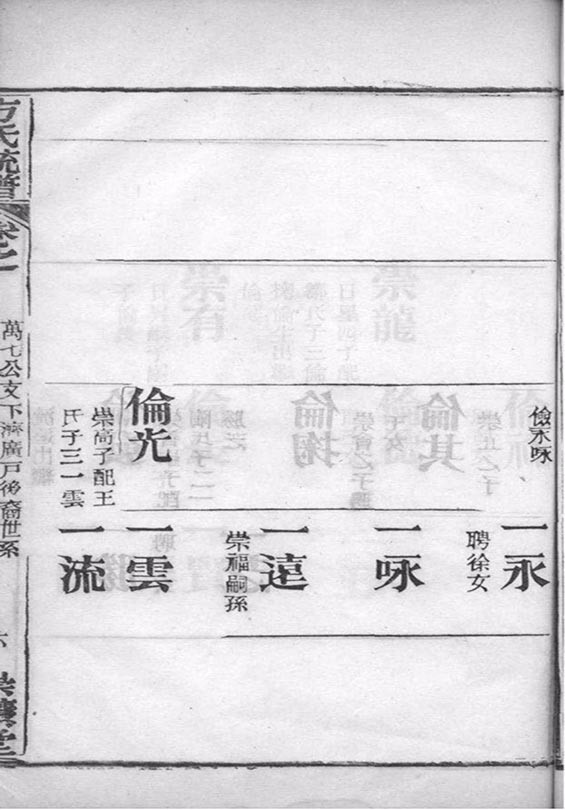 儉永咏
一永
聘徐女
一咏
一遠
崇福嗣孫
倫光
崇高子配王
氏子三一雲
一雲
一流
方氏統譜
卷之一
萬七公支下濟廣戶後裔世系
六